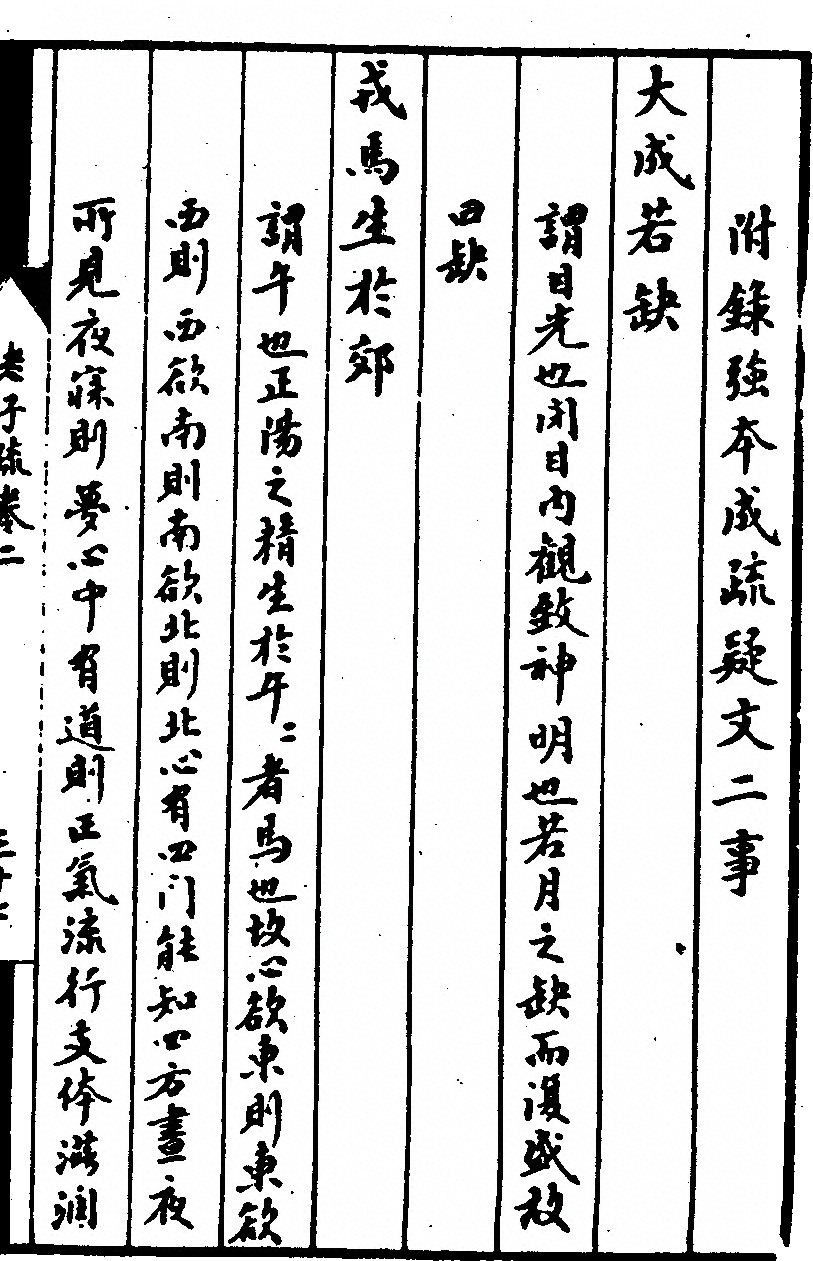 附錄強本成疏疑文二事
大成若缺
謂目光也閉目內觀致神明也若月之缺而復盛故
曰缺
戎馬生於郊
謂午也正陽之精生於午〻者馬也故心欲東則東欲
西則西欲南則南欲北則北心有四門能知四方晝夜
所見夜寐則夢心中有道則正氣流行支体滋润
老子疏卷二
三十七